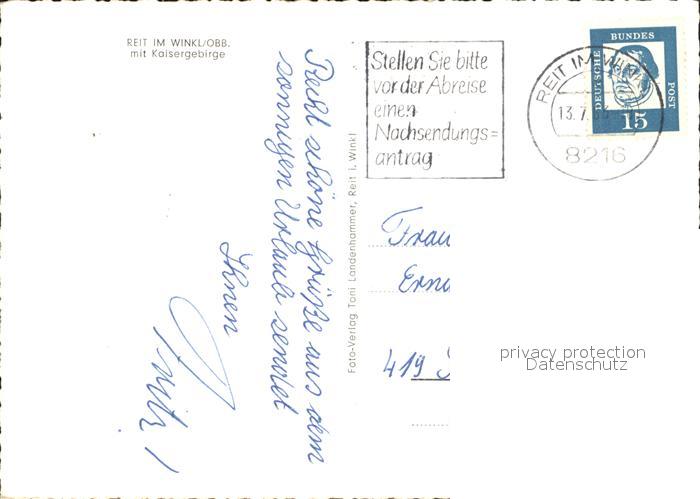 REIT IM WINKL/OBB.
mit Kaisergebirge
Recht schöne Grüße aus dem
sonnigen Urlaub sendet
Ihnen
Foto-Verlag Toni Landenhammer, Reit i. Winkl
Stellen Sie bitte
vor der Abreise
einen
Nachsendungs=
antrag
REIT IM WINKL
13.7.63
8216
DEUTSCHE
BUNDES
POST
15
Frau
Erna
419
privacy protection
Datenschutz